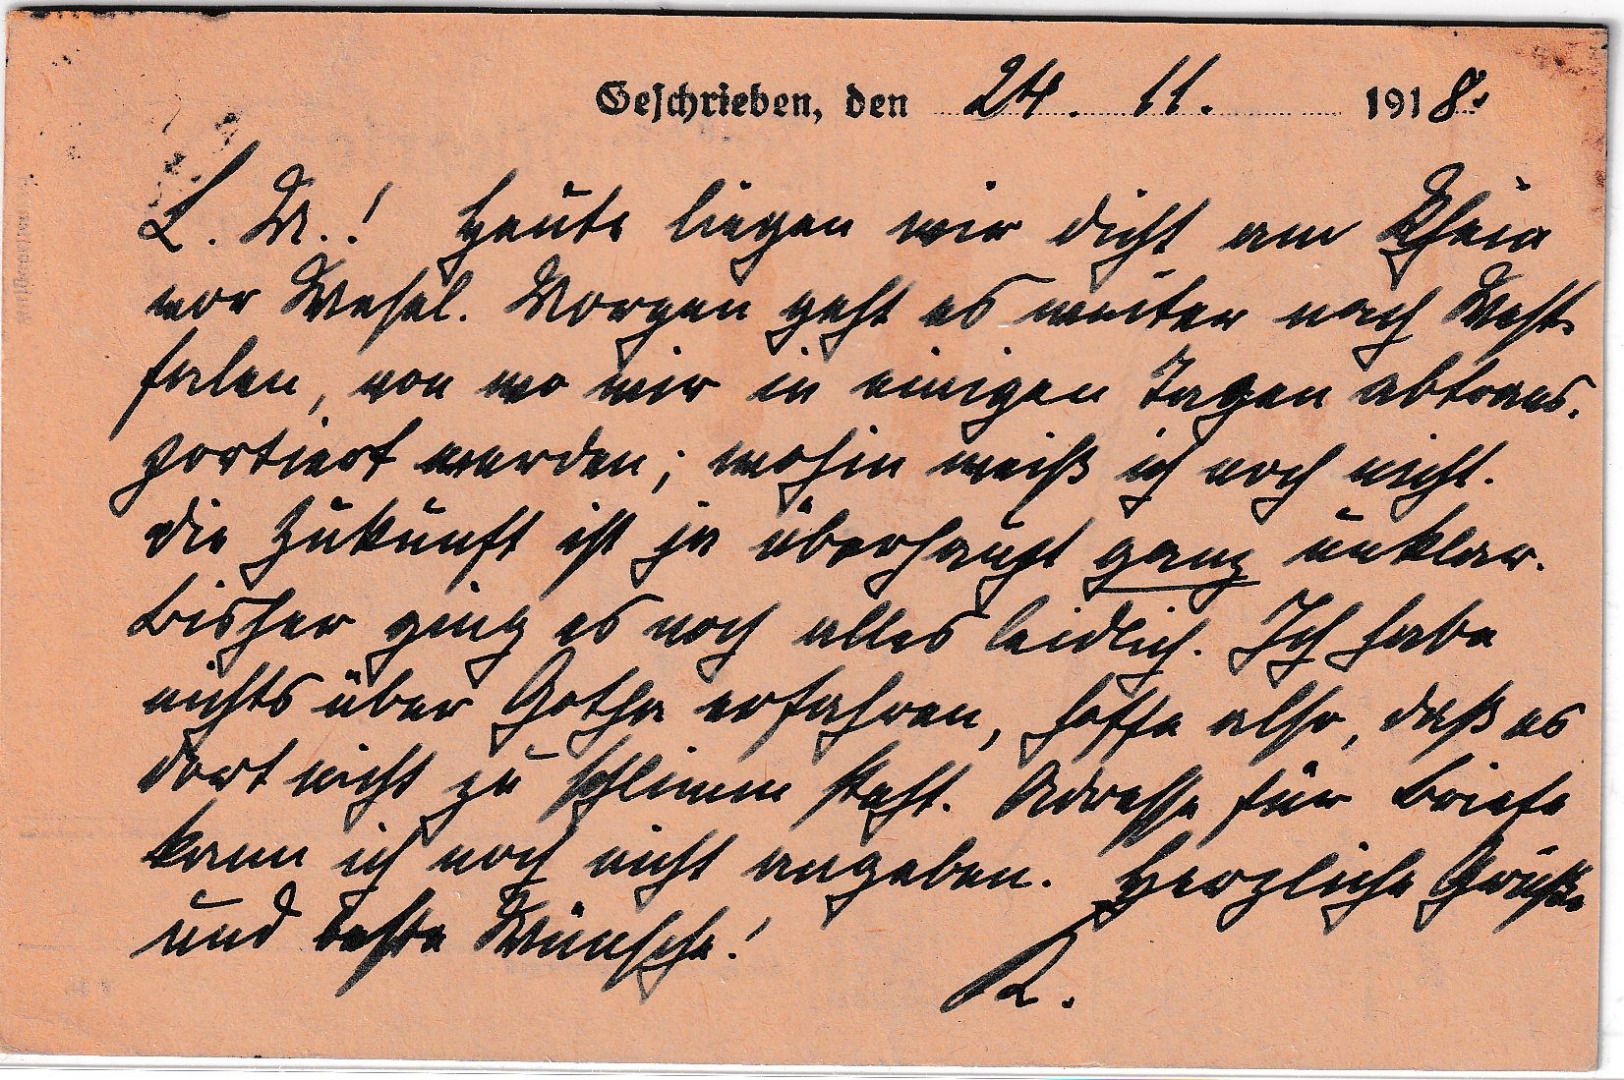 Geschrieben, den 24. 11. 1918.
L. M.! Heute liegen wir dicht am Rhein
vor Wesel. Morgen geht es weiter nach West-
falen, von wo wir in einigen Tagen abtrans-
portiert werden; wohin weiß ich noch nicht.
Die Zukunft ist ja überhaupt ganz unklar.
Bisher ging es noch alles leidlich. Ich habe
nichts über Gotha erfahren, hoffe also, daß es
dort nicht zu schlimm steht. Adresse für Briefe
kann ich noch nicht angeben. Herzliche Grüße
und beste Wünsche!
R.